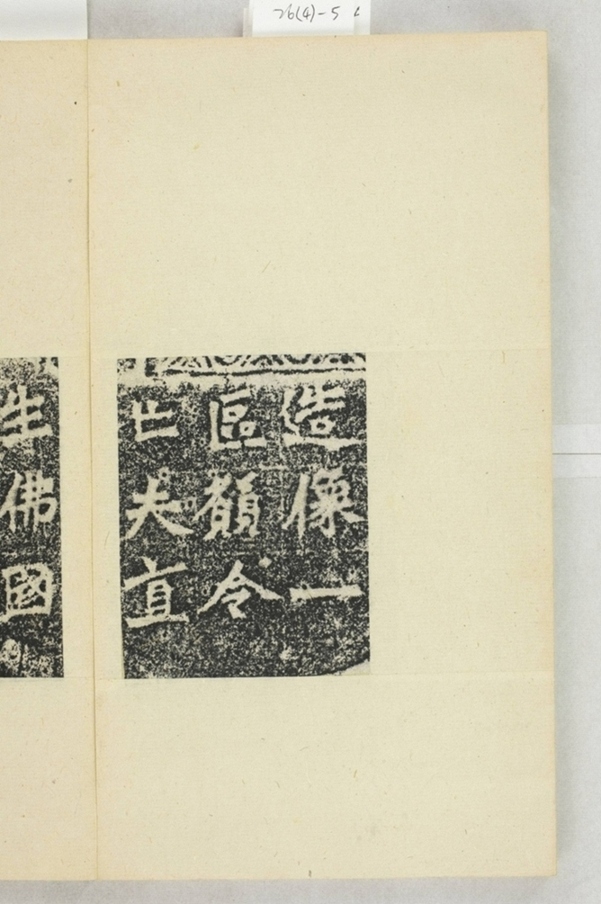 造像一
區願令
亡夫直
生佛國
76(4)-5